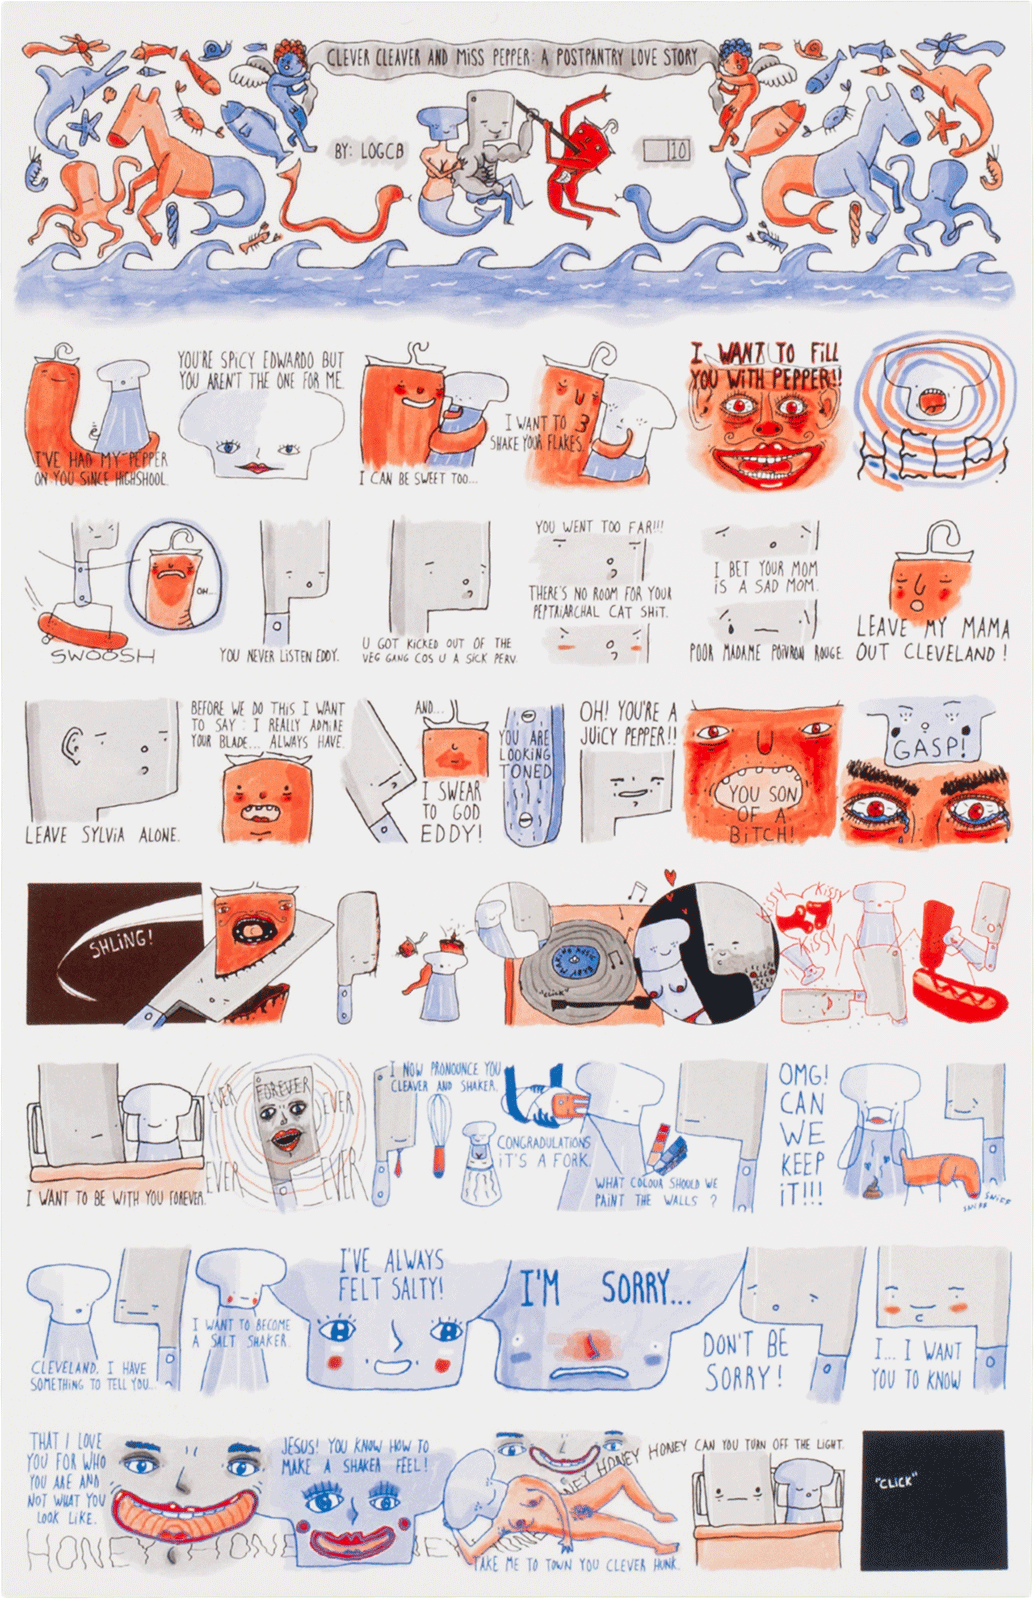 CLEVER CLEAVER AND MISS PEPPER: A POSTPANTRY LOVE STORY
BY: LOGCB
10
I'VE HAD MY PEPPER
ON YOU SINCE HIGHSHOOL.
YOU'RE SPICY EDWARDO BUT
YOU AREN'T THE ONE FOR ME.
I CAN BE SWEET TOO...
I WANT TO
SHAKE YOUR FLAKES.
I WANT TO FILL
YOU WITH PEPPER!!
HELP!
SWOOSH
OH...
YOU NEVER LISTEN EDDY.
U GOT KICKED OUT OF THE
VEG GANG COS U A SICK PERV.
YOU WENT TOO FAR!!!
THERE'S NO ROOM FOR YOUR
PEPTRIARCHAL CAT SHIT.
I BET YOUR MOM
IS A SAD MOM.
POOR MADAME POIVRON ROUGE.
LEAVE MY MAMA
OUT CLEVELAND!
LEAVE SYLVIA ALONE.
BEFORE WE DO THIS I WANT
TO SAY: I REALLY ADMIRE
YOUR BLADE... ALWAYS HAVE.
AND...
I SWEAR
TO GOD
EDDY!
YOU ARE
LOOKING
TONED
OH! YOU'RE A
JUICY PEPPER!!
YOU SON
OF A
BITCH!
GASP!
SHLING!
BABY MAKING MUSIC
"CLICK"
KISSY
KISSY
KISSY
I WANT TO BE WITH YOU FOREVER.
FOREVER
EVER
EVER
EVER
EVER
I NOW PRONOUNCE YOU
CLEAVER AND SHAKER.
CONGRADULATIONS
IT'S A FORK.
WHAT COLOUR SHOULD WE
PAINT THE WALLS ?
OMG!
CAN
WE
KEEP
IT!!!
SNIFF
SNIFF
CLEVELAND, I HAVE
SOMETHING TO TELL YOU...
I WANT TO BECOME
A SALT SHAKER.
I'VE ALWAYS
FELT SALTY!
I'M SORRY...
DON'T BE
SORRY!
I... I WANT
YOU TO KNOW
THAT I LOVE
YOU FOR WHO
YOU ARE AND
NOT WHAT YOU
LOOK LIKE.
JESUS! YOU KNOW HOW TO
MAKE A SHAKER FEEL!
HONEY HONEY HONEY HONEY
TAKE ME TO TOWN YOU CLEVER HUNK.
HONEY HONEY HONEY CAN YOU TURN OFF THE LIGHT.
"CLICK"